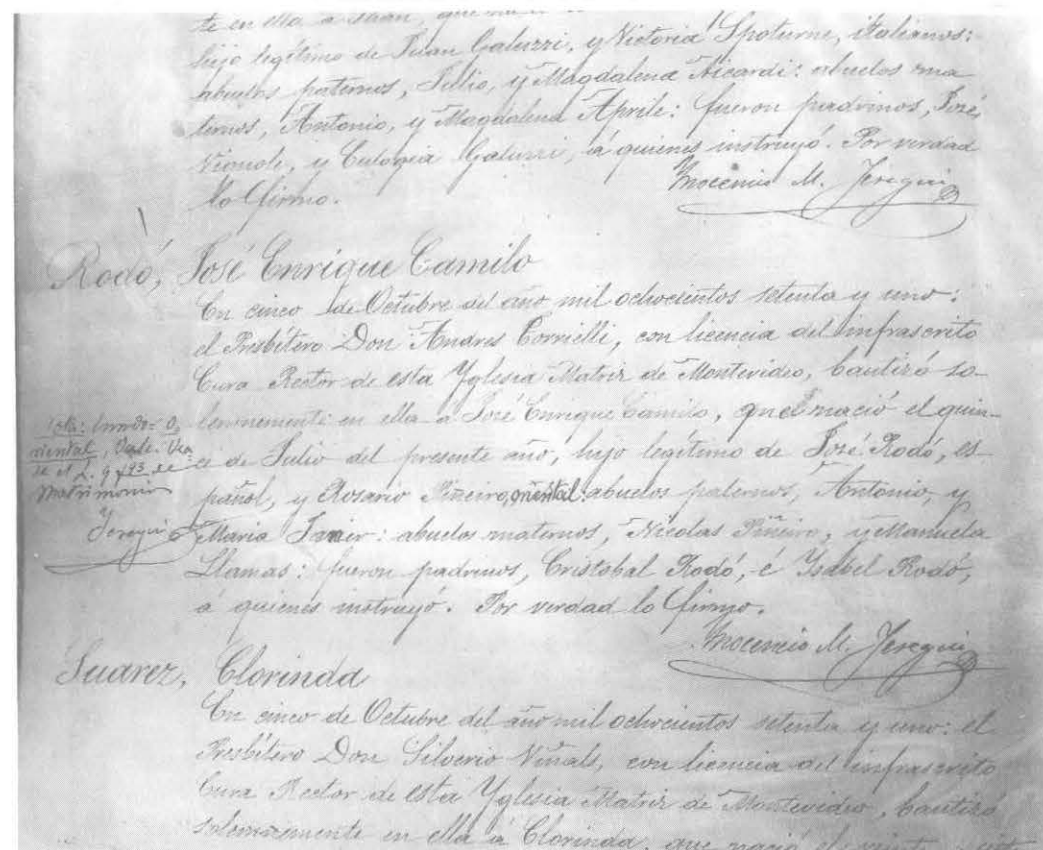 te en ella a Juan, que nació el
hijo legítimo de Juan Galuzzi, y Victoria Spoturno, italianos:
abuelos paternos, Julio, y Magdalena Aicardi: abuelos ma
ternos, Antonio, y Magdalena Aprile: fueron padrinos, José
Vignole, y Eulogia Galuzzi, á quienes instruyó. Por verdad
lo firmo.
Inocencio M. Yeregui
Rodó, José Enrique Camilo
En cinco de Octubre del año mil ochocientos setenta y uno:
el Presbítero Don Andres Torrielli, con licencia del infrascrito
Cura Rector de esta Yglesia Matriz de Montevideo, bautizó so-
lemnemente en ella á José Enrique Camilo, que nació el quin-
ce de Julio del presente año, hijo legítimo de José Rodó, es
pañol, y Rosario Piñeiro, oriental: abuelos paternos, Antonio, y
Maria Janer: abuelos maternos, Nicolas Piñeiro, y Manuela
Llamas: fueron padrinos, Cristobal Rodó, é Ysabel Rodó,
á quienes instruyó. Por verdad lo firmo.
Inocencio M. Yeregui
Nota: Enmdo= O,
riental, Vale. Vea
se el L. 9 f 93 de
Matrimonios
Yeregui
Suarez, Clorinda
En cinco de Octubre del año mil ochocientos setenta y uno: el
Presbítero Don Silverio Viñals, con licencia del infrascrito
Cura Rector de esta Yglesia Matriz de Montevideo, bautizó
solemnemente en ella á Clorinda, que nació el veinte y